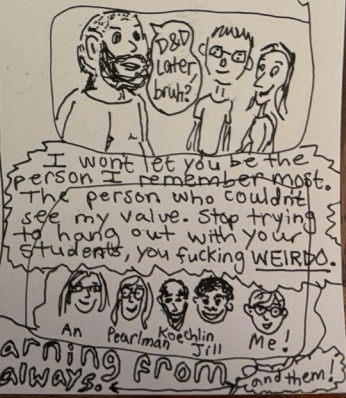 D&D
Later,
bruh?
I wont let you be the
person I remember most.
The person who couldn't
see my value. Stop trying
to hang out with your
students, you fucking WEIRDO.
An
Pearlman
Koechlin
Jill
Me!
arning from
always.
and them!